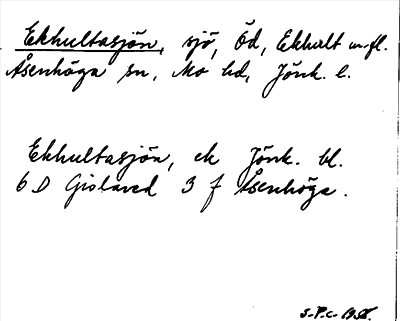 Ekhultasjön, sjö, Öd, Ekhult m.fl.
Åsenhöga sn, Mo hd, Jönk. l.
Ekhultasjön, ek Jönk. bl.
6 D Gislaved 3 f Åsenhöga.
S-P.C. 1958.